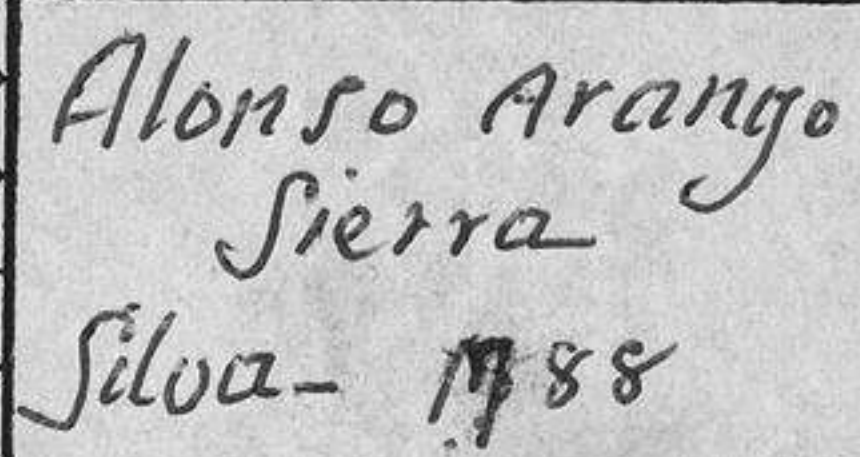 Alonso Arango
Sierra
Silva-